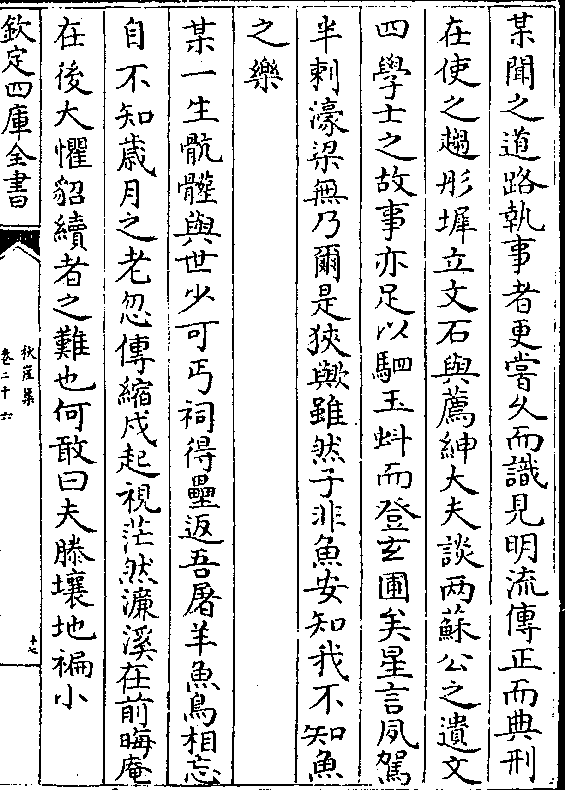 某聞之道路執事者更嘗久而識見明流傳正而典刑
在使之趨彤墀立文石與薦紳大夫談两蘇公之遺文
四學士之故事亦足以駟玉蚪而登玄圃矣星言夙駕
半刺濠梁無乃爾是狹歟雖然子非魚安知我不知魚
之樂
某一生骯髒與世少可丐祠得壘返吾屠羊魚鳥相忘
自不知歳月之老忽傳縮戍起視茫然濂溪在前晦庵
在後大懼貂續者之難也何敢曰夫滕壤地褊小
欽定四庫全書
秋崖集
卷二十六